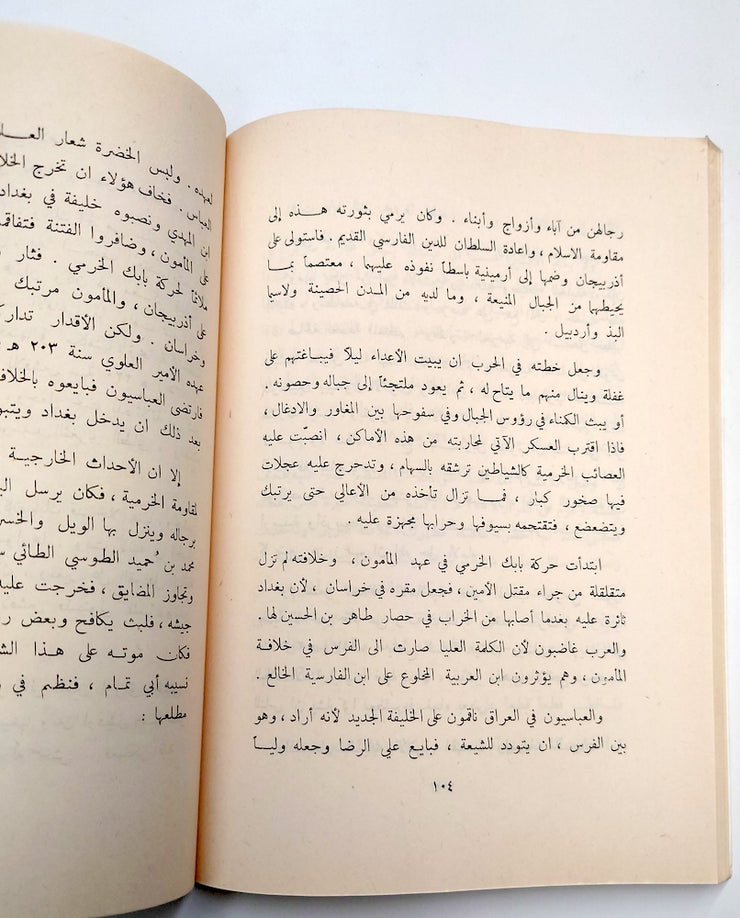 رجالهن من آباء وأزواج وأبناء . وكان يرمي بثورته هـذه إلى
مقاومة الاسلام ، واعادة السلطان للدين الفارسي القديم . فاستولى على
أذربيجان وضمها إلى أرمينية باسطاً نفوذه عليهما ، معتصماً بما
يحيطهما من الجبال المنيعة ، وما لديه من المدن الحصينة ولاسيما
البذ وأردبيل .
وجعل خطته في الحرب ان يبيت الأعداء ليلاً فيباغتهم على
غفلة وينال منهم ما يتاح له ، ثم يعود ملتجئاً إلى جباله وحصونه .
أو يبث الكمناء في رؤوس الجبال وفي سفوحها بين المغاور والادغال ،
فاذا اقترب العسكر الآتي لمحاربته من هذه الأماكن ، انصبّت عليه
العصائب الخرمية كالشياطين ترشقه بالسهام ، وتدحرج عليه عجلات
فيها صخور كبار ، فمـا تزال تأخذه من الأعالي حتى يرتبك
ويتضعضع ، فتقتحمه بسيوفها وحرابها مجهزة عليه .
ابتدأت حركة بابك الخرمي في عهد المأمون ، وخلافته لم تزل
متقلقلة من جراء مقتل الأمين ، فجعل مقره في خراسان ، لأن بغداد
ثائرة عليه بغدما أصابها من الخراب في حصار طاهر بن الحسين لها .
والعرب غاضبون لأن الكلمة العليا صارت الى الفرس في خلافة
المأمون ، وهم يؤثرون ابن العربية المخلوع على ابن الفارسية الخالع .
والعباسيون في العراق ناقمون على الخليفة الجديد لأنه أراد ، وهو
بين الفرس ، ان يتودد للشيعة ، فبايع علي الرضا وجعله وليـاً
١٠٤
لعهده . ولبس الخضرة شعار
العباس . فخاف هؤلاء ان تخرج
ابن المهدي ونصبوه خليفة في
على المأمون ، وضافروا الفتنة
ملائماً لحركة بابك الخرمي . فثار
على أذربيجان ، والمأمون مرتبك
وخراسان . ولكن الأقدار
عهده الأمير العلوي سنة ٢٠٣ هـ
فارتضى العباسيون فبايعوه
بعد ذلك ان يدخل بغداد
إلا ان الأحداث الخارجية
لمقاومة الخرمية ، فكان يرسل
برجاله وينزل بها الويل
محمد بن حُميد الطوسي الطائي
وتجاوز المضايق ، فخرجت
جيشه ، فلبث يكافح وبعض
فكان موته على هذا
نسيبه أبي تمـام ، فنظم في
مطلعها :